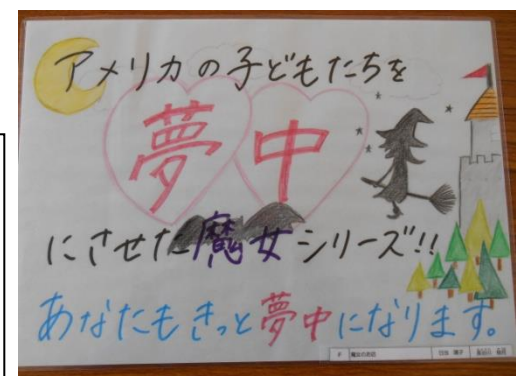 アメリカの子どもたちを
夢中
にさせた魔女シリーズ!!
あなたもきっと夢中になります。